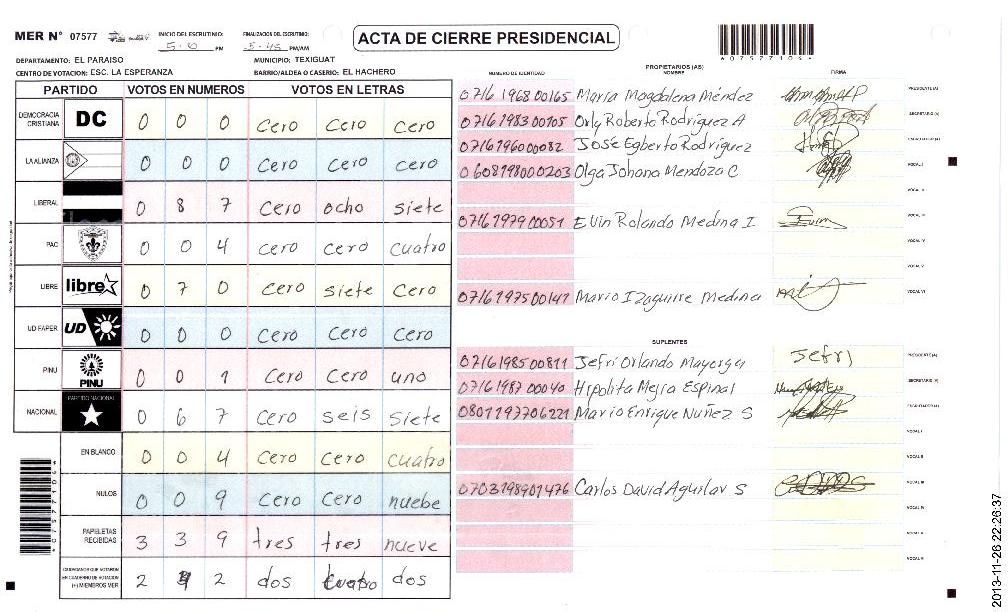 MER N° 07577 INICIO DEL ESCRUTINIO: 5:0 PM FINALIZACION DEL ESCRUTINIO: 5:45 PM/AM
ACTA DE CIERRE PRESIDENCIAL
DEPARTAMENTO: EL PARAISO MUNICIPIO: TEXIGUAT
CENTRO DE VOTACION: ESC. LA ESPERANZA BARRIO/ALDEA O CASERIO: EL HACHERO
PARTIDO VOTOS EN NUMEROS VOTOS EN LETRAS
DEMOCRACIA CRISTIANA DC 0 0 0 Cero Cero Cero
LA ALIANZA 0 0 0 Cero Cero cero
LIBERAL 0 8 7 Cero ocho siete
PAC 0 0 4 cero cero cuatro
LIBRE libre 0 7 0 Cero siete Cero
UD FAPER UD 0 0 0 Cero Cero Cero
PINU PINU 0 0 1 Cero Cero uno
NACIONAL PARTIDO NACIONAL 0 6 7 Cero seis siete
EN BLANCO 0 0 4 Cero Cero cuatro
NULOS 0 0 9 Cero Cero nuebe
PAPELETAS RECIBIDAS 3 3 9 tres tres nueve
CIUDADANOS QUE VOTARON EN CUADERNO DE VOTACION (+) MIEMBROS MER 2 4 2 dos cuatro dos
4075771064
PROPIETARIOS (AS)
NUMERO DE IDENTIDAD NOMBRE FIRMA
0716 1968 00165 María Magdalena Méndez PRESIDENTE (A)
0716 1983 00105 Orly Roberto Rodríguez A SECRETARIO (A)
0716 1960 00082 José Egberto Rodríguez ESCRUTADOR (A)
0608198000203 Olga Johana Mendoza C VOCAL I
VOCAL II
0716 1979 00051 Elvin Rolando Medina I. VOCAL III
VOCAL IV
VOCAL V
0716 1975 00147 Mario Izaguirre Medina VOCAL VI
SUPLENTES
0716 1985 00811 Jefri Orlando Mayorga Jefri PRESIDENTE (A)
0716 1987 00040 Hipolita Mejia Espinal SECRETARIO (A)
0801197706221 Mario Enrique Nuñez S ESCRUTADOR (A)
VOCAL I
VOCAL II
0703198901476 Carlos David Aguilar S VOCAL III
VOCAL IV
VOCAL V
VOCAL VI
2013-11-26 22:26:37